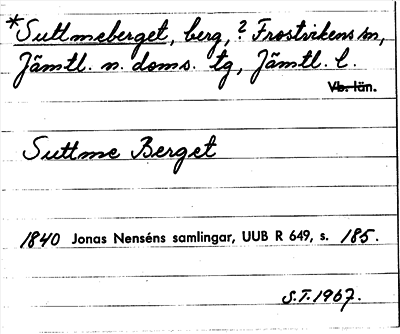 *Suttmeberget, berg, ? Frostvikens sn,
Jämtl. n. doms. tg, Jämtl. l.
Vb. län.
Suttme Berget
1840 Jonas Nenséns samlingar, UUB R 649, s. 185.
S.T. 1967.